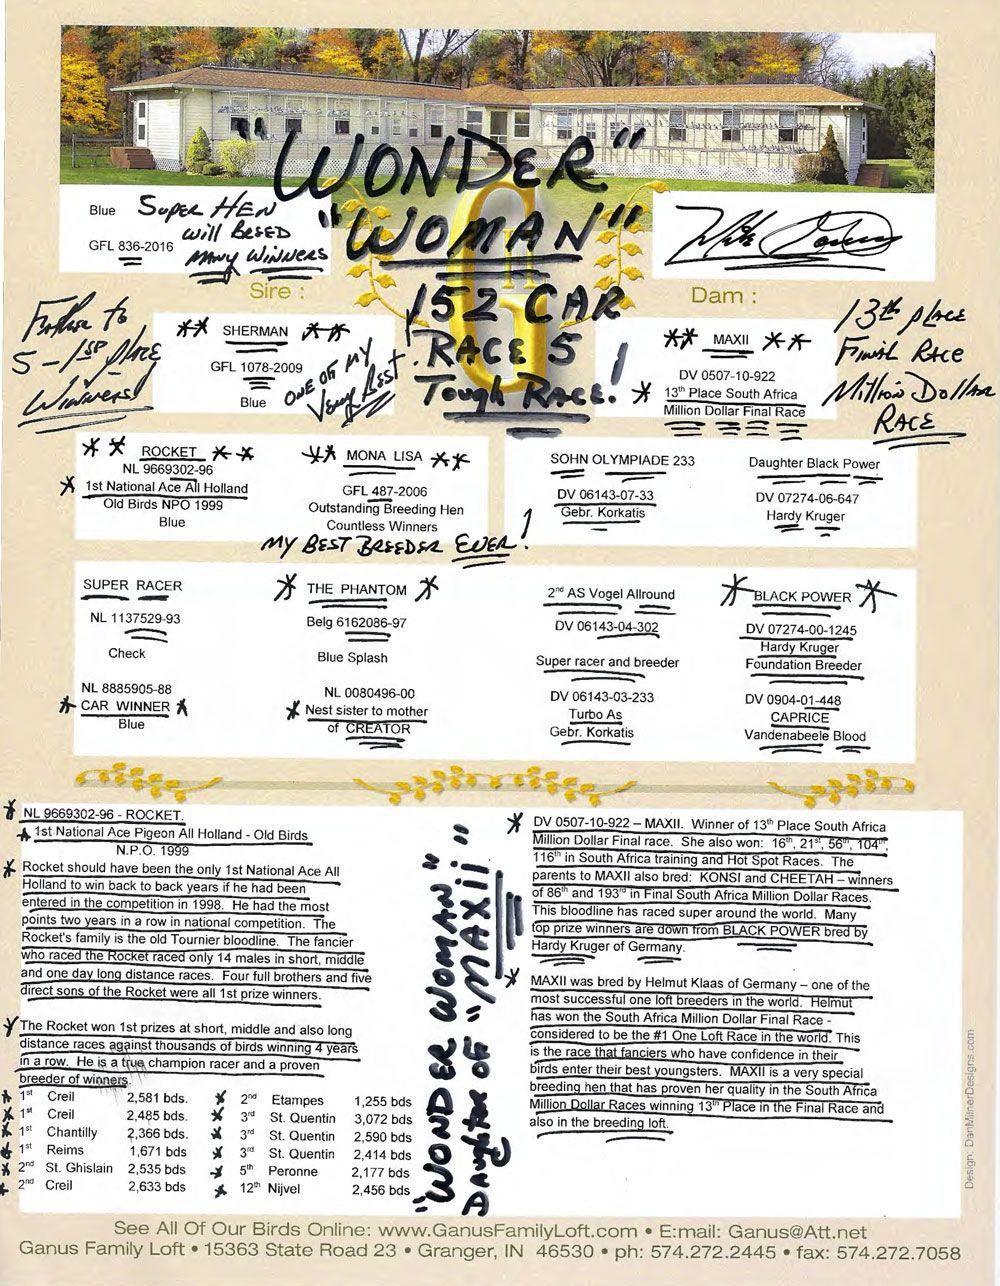 "WONDER"
"WOMAN"
Blue
GFL 836-2016
Super Hen
will Breed
many winners
Sire :
Dam :
152 CAR
RACE 5
Tough RACE!
Father to
5 - 1st place
Winners!
** SHERMAN **
GFL 1078-2009
Blue
ONE OF MY
Very Best
** MAXII **
DV 0507-10-922
* 13th Place South Africa
Million Dollar Final Race
13th place
Final Race
Million Dollar
RACE
** ROCKET **
NL 9669302-96
* 1st National Ace All Holland
Old Birds NPO 1999
Blue
** MONA LISA **
GFL 487-2006
Outstanding Breeding Hen
Countless Winners
MY BEST BREEDER EVER!
SOHN OLYMPIADE 233
DV 06143-07-33
Gebr. Korkatis
Daughter Black Power
DV 07274-06-647
Hardy Kruger
SUPER RACER
NL 1137529-93
Check
NL 8885905-88
* CAR WINNER *
Blue
* THE PHANTOM *
Belg 6162086-97
Blue Splash
NL 0080496-00
* Nest sister to mother
of CREATOR
2nd AS Vogel Allround
DV 06143-04-302
Super racer and breeder
DV 06143-03-233
Turbo As
Gebr. Korkatis
* BLACK POWER *
DV 07274-00-1245
Hardy Kruger
Foundation Breeder
DV 0904-01-448
CAPRICE
Vandenabeele Blood
* NL 9669302-96 - ROCKET.
* 1st National Ace Pigeon All Holland - Old Birds
N.P.O. 1999
* Rocket should have been the only 1st National Ace All
Holland to win back to back years if he had been
entered in the competition in 1998. He had the most
points two years in a row in national competition. The
Rocket's family is the old Tournier bloodline. The fancier
who raced the Rocket raced only 14 males in short, middle
and one day long distance races. Four full brothers and five
direct sons of the Rocket were all 1st prize winners.
* The Rocket won 1st prizes at short, middle and also long
distance races against thousands of birds winning 4 years
in a row. He is a true champion racer and a proven
breeder of winners.
* 1st Creil 2,581 bds.
* 1st Creil 2,485 bds.
* 1st Chantilly 2,366 bds.
* 1st Reims 1,671 bds
* 2nd St. Ghislain 2,535 bds
* 2nd Creil 2,633 bds
* 2nd Etampes 1,255 bds
* 3rd St. Quentin 3,072 bds
* 3rd St. Quentin 2,590 bds
* 3rd St. Quentin 2,414 bds
* 5th Peronne 2,177 bds
* 12th Nijvel 2,456 bds
"WONDER WOMAN"
Daughter of "MAXII"
* DV 0507-10-922 – MAXII. Winner of 13th Place South Africa
Million Dollar Final race. She also won: 16th, 21st, 56th, 104th,
116th in South Africa training and Hot Spot Races. The
parents to MAXII also bred: KONSI and CHEETAH – winners
of 86th and 193rd in Final South Africa Million Dollar Races.
This bloodline has raced super around the world. Many
top prize winners are down from BLACK POWER bred by
Hardy Kruger of Germany.
* MAXII was bred by Helmut Klaas of Germany – one of the
most successful one loft breeders in the world. Helmut
has won the South Africa Million Dollar Final Race -
considered to be the #1 One Loft Race in the world. This
is the race that fanciers who have confidence in their
birds enter their best youngsters. MAXII is a very special
breeding hen that has proven her quality in the South Africa
Million Dollar Races winning 13th Place in the Final Race and
also in the breeding loft.
Design: DanMilnerDesigns.com
See All Of Our Birds Online: www.GanusFamilyLoft.com • E:mail: Ganus@Att.net
Ganus Family Loft • 15363 State Road 23 • Granger, IN 46530 • ph: 574.272.2445 • fax: 574.272.7058